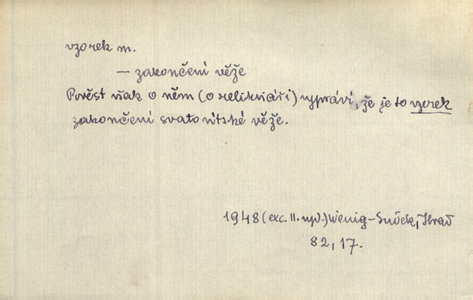 vzorek m.
— zakončení věže
Pověst však o něm (o relikviáři) vypráví, že je to vzorek
zakončení svatovítské věže.
1948 (exc. II. vyd.) Wenig-Snížek, Hrad
82, 17.